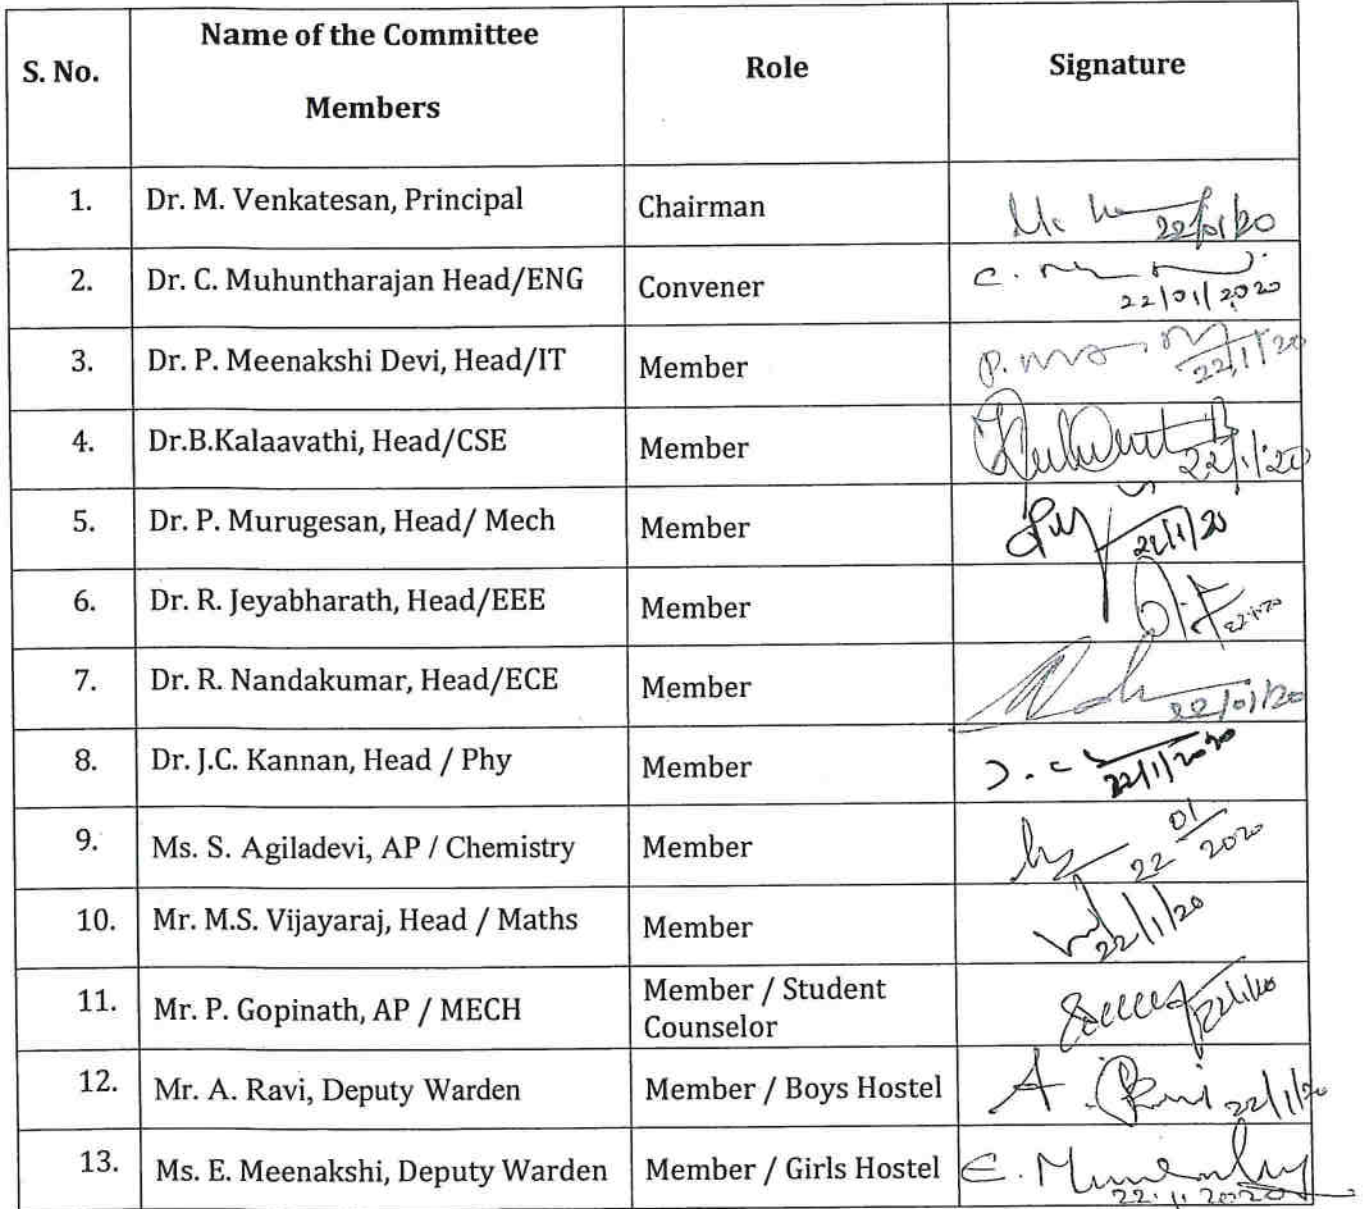 S. No. Name of the Committee Members Role Signature
1. Dr. M. Venkatesan, Principal Chairman 22/01/20
2. Dr. C. Muhuntharajan Head/ENG Convener C. 22/01/2020
3. Dr. P. Meenakshi Devi, Head/IT Member P. 22/1/20
4. Dr.B.Kalaavathi, Head/CSE Member 22/1/20
5. Dr. P. Murugesan, Head/ Mech Member 22/1/20
6. Dr. R. Jeyabharath, Head/EEE Member 22.1.20
7. Dr. R. Nandakumar, Head/ECE Member 22/01/20
8. Dr. J.C. Kannan, Head / Phy Member J. C 22/1/2020
9. Ms. S. Agiladevi, AP / Chemistry Member 22 01/2020
10. Mr. M.S. Vijayaraj, Head / Maths Member 22/1/20
11. Mr. P. Gopinath, AP / MECH Member / Student Counselor 22/1/20
12. Mr. A. Ravi, Deputy Warden Member / Boys Hostel A. Ravi 22/1/20
13. Ms. E. Meenakshi, Deputy Warden Member / Girls Hostel E. 22.1.2020